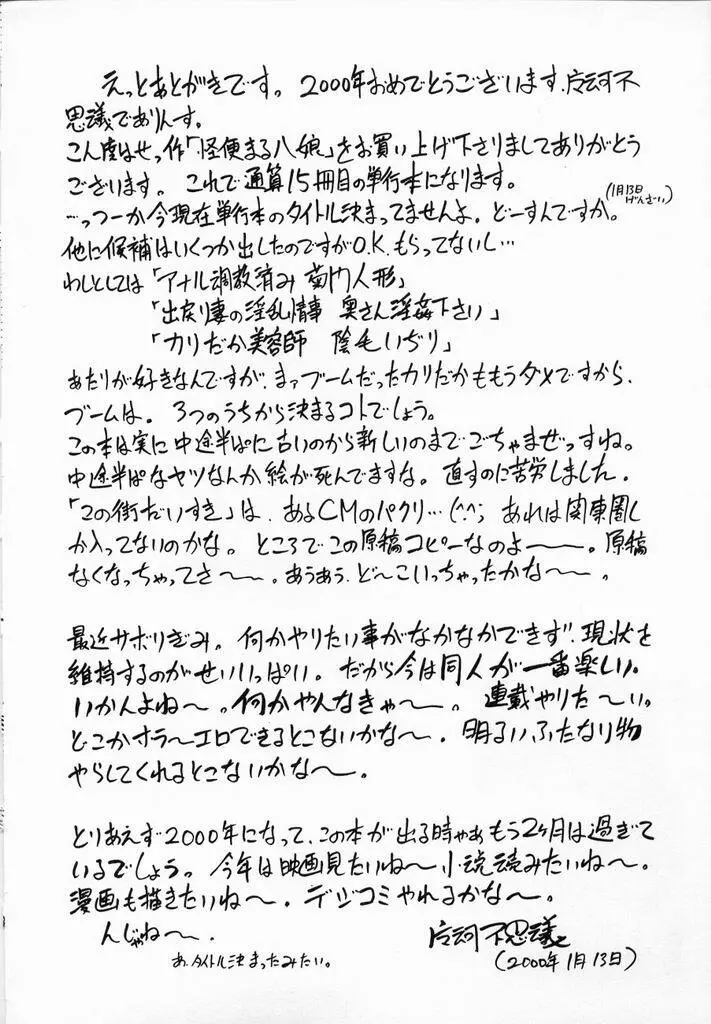 えっとあとがきです。2000年おめでとうございます、
思議でありんす。
こん度はせっ作「怪便まる八娘」をお買い上げ下さりましてありがとう
ございます。これで通算15冊目の単行本になります。
…っつーか今現在単行本のタイトル決まってませんよ。どーすんですか。(1月13日げんざい)
他に候補はいくつか出したのですがO.K.もらってないし…
わしとしては「アナル調教済み 菊門人形」
「出戻り妻の淫乱情事 奥さん淫姦下さい」
「カリだか美容師 陰毛いぢり」
あたりが好きなんですが、まァブームだったカリだかももうダメですから、
ブームは。3つのうちから決まるコトでしょう。
この本は実に中途半ぱに古いのから新しいのまでごちゃまぜっすね。
中途半ぱなヤツなんか絵が死んでますな。直すのに苦労しました。
「この街だいすき」は、あるCMのパクリ…(^.^; あれは関東圏し
か入ってないのかな。ところでこの原稿コピーなのよ〜〜。原稿
なくなっちゃってさ〜〜。あうあう、ど〜こいっちゃったかな〜〜。
最近サボりぎみ。何かやりたい事がなかなかできず、現状を
維持するのがせいいっぱい。だから今は同人が一番楽しい。
いかんよね〜。何かやんなきゃ〜〜。連載やりた〜い。
どこかオラ〜エロできるとこないかな〜。明るいふたなり物
やらしてくれるとこないかな〜。
とりあえず2000年になって、この本が出る時ゃあもう2ヶ月は過ぎて
いるでしょう。今年は映画見たいね〜小説読みたいね〜。
漫画も描きたいね〜。デジコミやれるかな〜。
んじゃね〜〜.
不思議
あ、タイトル決まったみたい。
(2000年1月13日)